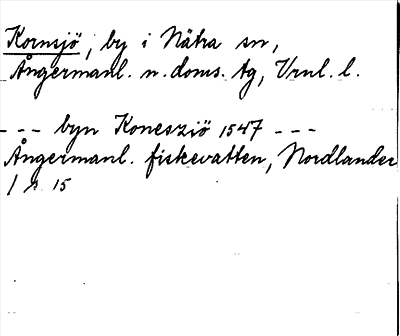 Kornsjö, by i Nätra sn,
Ångermanl. n. doms. tg, Vrnl. l.
--- byn Konesziö 1547 ---
Ångermanl. fiskevatten, Nordlander
/ s. 15